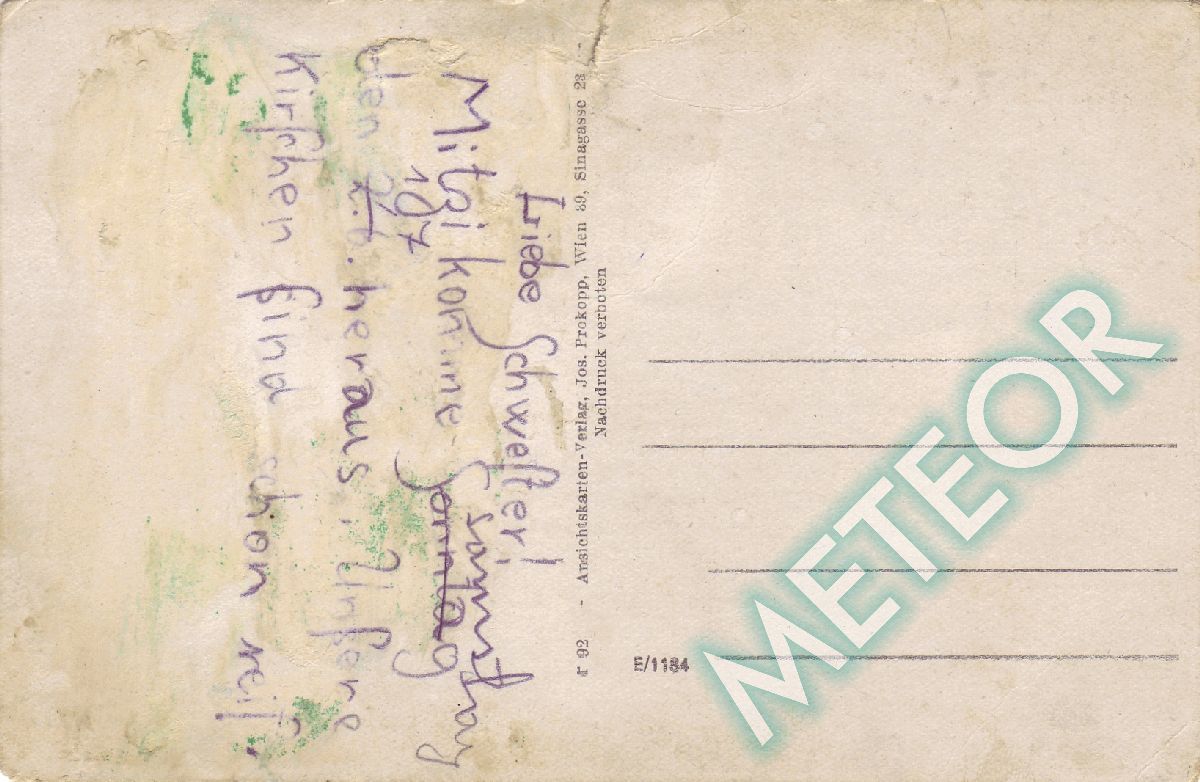 Liebe Schwester!
Samstag
Mitzi komme Sonntag
10,7
den heraus. Unsere
Kirschen sind schon reif.
92 - Ansichtskarten-Verlag, Jos. Prokopp, Wien 89, Sinagasse 23 -
Nachdruck verboten
E/1184
METEOR